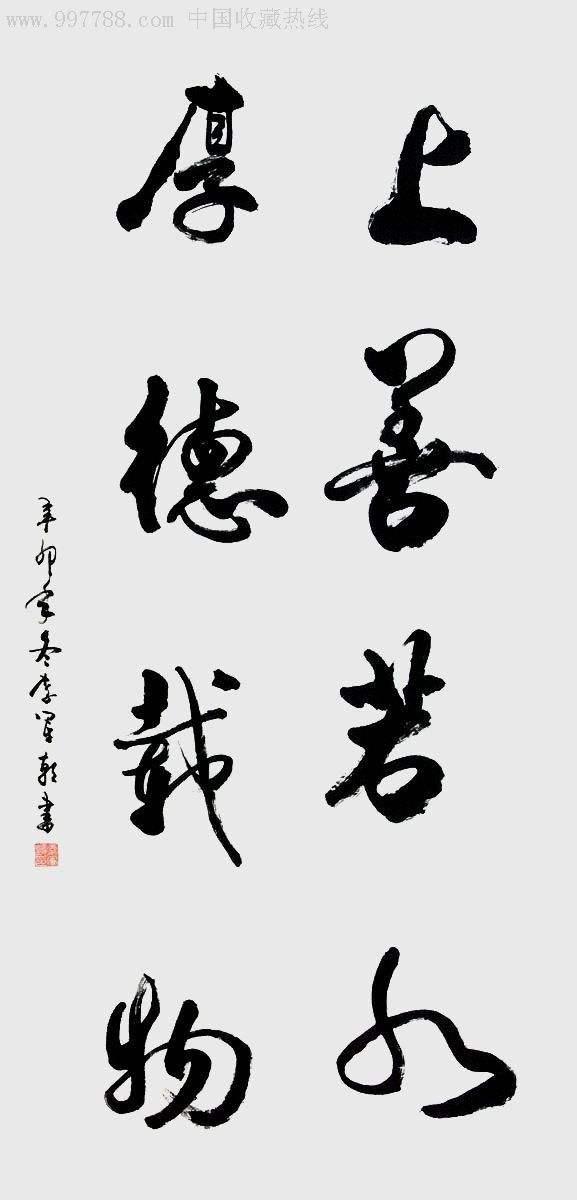 www.997788.com 中国收藏热线
上善若水
厚德载物
辛卯年冬李星朝书